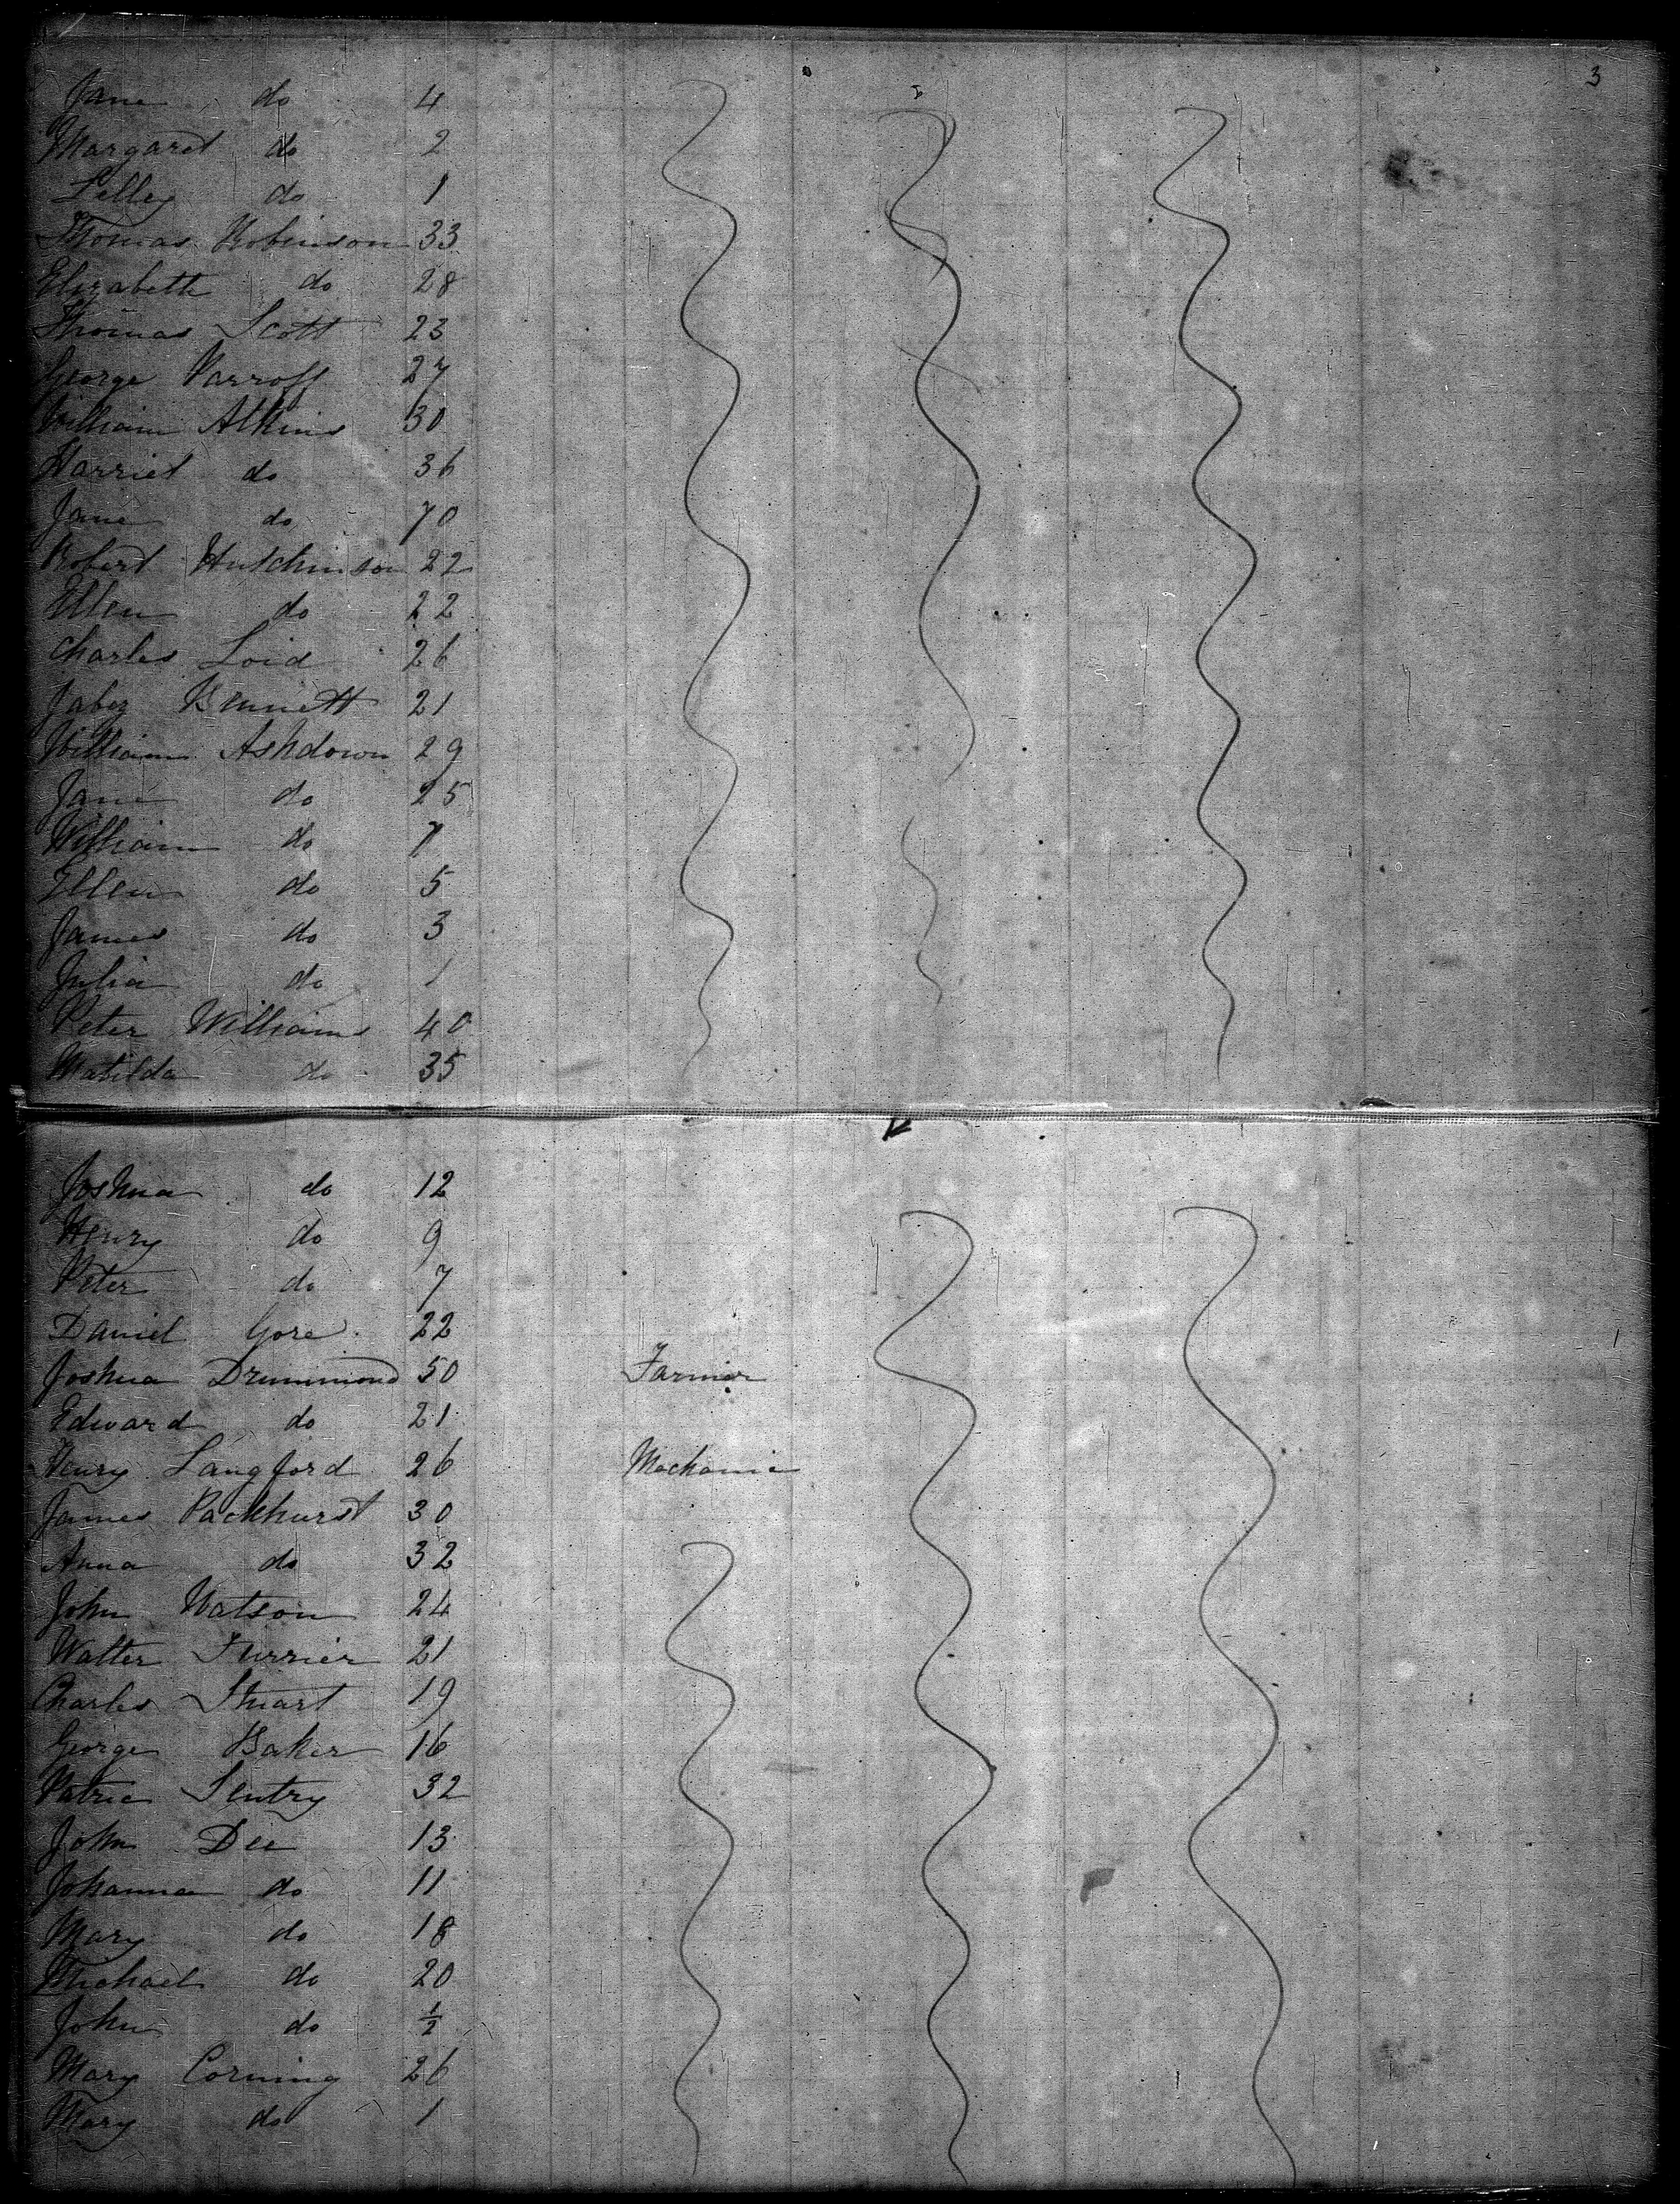 3
Jane do 4
Margaret do 2
Lilley do 1
Thomas Robinson 33
Elizabeth do 28
Thomas Scott 23
George Parroff 27
William Atkins 30
Harriet do 36
Jane do 70
Robert Hutchinson 22
Ellen do 22
Charles Loid 26
Jabez Bennett 21
William Ashdown 29
Jane do 25
William do 7
Ellen do 5
James do 3
Julia do 1
Peter Williams 40
Matilda do 35
Joshua do 12
Henry do 9
Peter do 7
Daniel Gore 22
Joshua Drummond 50 Farmer
Edward do 21
Henry Langford 26 Mechanic
James Packhurst 30
Anna do 32
John Watson 24
Walter Furrier 21
Charles Stuart 19
George Baker 16
Patric Sentry 32
John Dee 13
Johanna do 11
Mary do 18
Michael do 20
John do ½
Mary Corning 26
Mary do 1